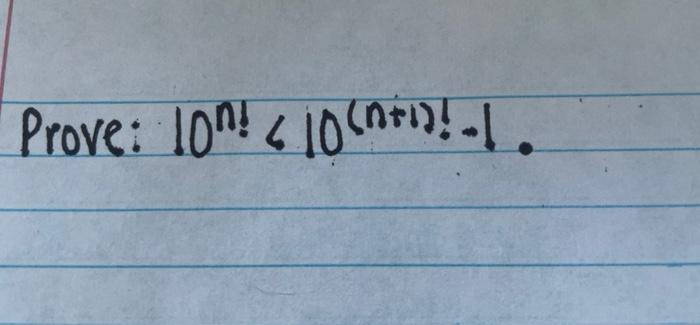 Prove: 10^{n!} < 10^{(n+1)!} - 1.